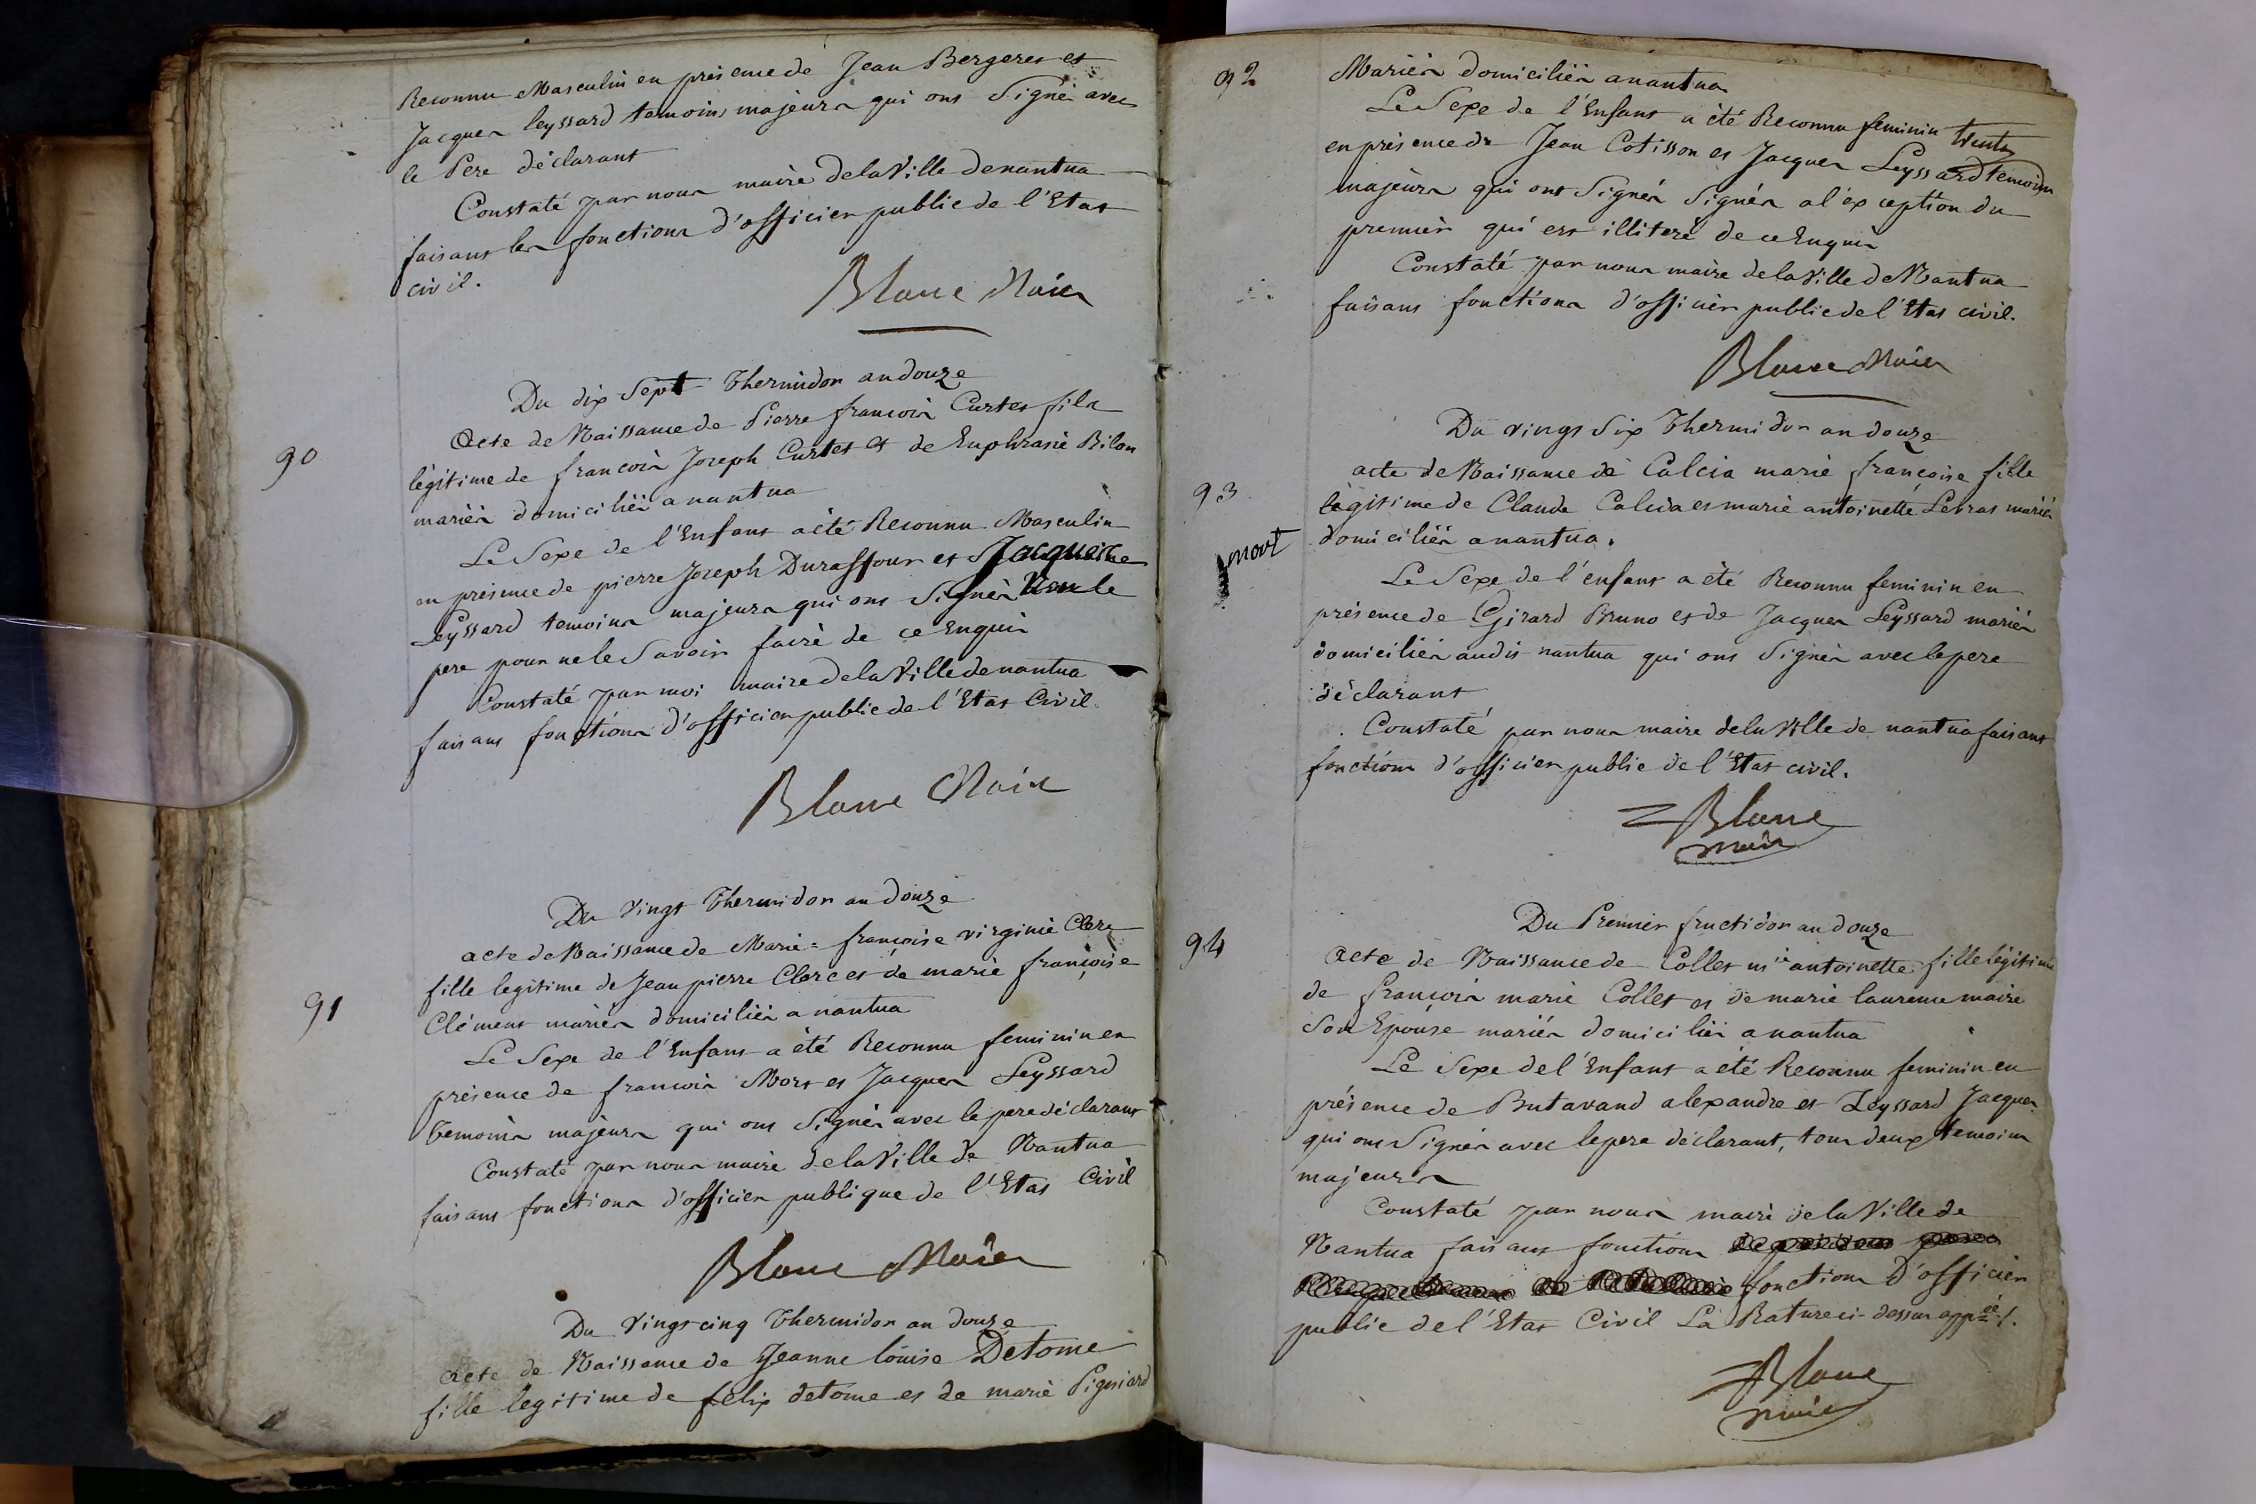 Reconnu Masculin en présence de Jean Bergeret et
Jacques leyssard temoins majeurs qui ont Signé avec
le Pere déclarant
Constaté par nous maire de la Ville de nantua
faisant les fonctions d'officier public de l'Etat
civil.
Blanc Maire
Du dix Sept Thermidor an douze
90
Acte de Naissance de Pierre françois Curtet fils
légitime de françois Joseph Curtet et de Euphrasie Bilon
mariés domiciliés a nantua
Le Sexe de l'Enfant a été Reconnu Masculin
en présence de pierre Joseph Duraffour et Jacques
Leyssard temoins majeurs qui ont Signés Non le
pere pour ne le Savoir faire de ce Enquis
Constaté par moi maire de la Ville de nantua
faisant fonctions d'officier public de l'Etat Civil.
Blanc Maire
Du Vingt Thermidor an douze
acte de Naissance de Marie = françoise virginie Clerc
fille legitime de Jean pierre Clerc et de marie françoise
91
Clément mariés domiciliés a nantua
Le Sexe de l'Enfant a été Reconnu feminin en
présence de françois Mort et Jacques Leyssard
temoins majeurs qui ont Signés avec le pere déclarant
Constaté par nous maire de la Ville de Nantua
faisant fonctions d'officier publique de l'Etat Civil
Blanc Maire
Du Vingt cinq Thermidor an douze
Acte de Naissance de Jeanne louise Detome
fille legitime de felix detome et de marie Pigniard
92
Mariés domiciliés a nantua
Le Sexe de l'Enfant a été Reconnu feminin
en présence de Jean Cotisson et Jacques Leyssard temoins
majeurs qui ont Signés Signés a l'exception du
premier qui est illiteré de ce Enquis
Constaté par nous maire de la Ville de Nantua
faisant fonctions d'officier public de l'Etat civil.
Blanc Maire
Du vingt Six Thermidor an douze
acte de Naissance de Calcia marie françoise fille
93
légitime de Claude Calcia et marie antoinette Lebras mariés
mort
domiciliés a nantua.
Le Sexe de l'enfant a été Reconnu feminin en
présence de Girard Bruno et de Jacques Leyssard mariés
domiciliés audit nantua qui ont Signés avec le pere
déclarant
Constaté par nous maire de la Ville de nantua faisant
fonctions d'officier public de l'Etat civil.
Blanc
maire
Du Premier fructidor an douze
94
Acte de Naissance de Collet mie antoinette fille légitime
de françois marie Collet et de marie laurence maire
Son Epouse mariés domiciliés a nantua
Le Sexe de l'Enfant a été Reconnu feminin en
présence de Butavand alexandre et Leyssard Jacques
qui ont Signés avec le pere déclarant, tous deux temoins
majeurs
Constaté par nous maire de la Ville de
Nantua faisant fonctions
fonctions D'officier
public de l'Etat Civil La Rature ci-dessus appée /.
Blanc
maire